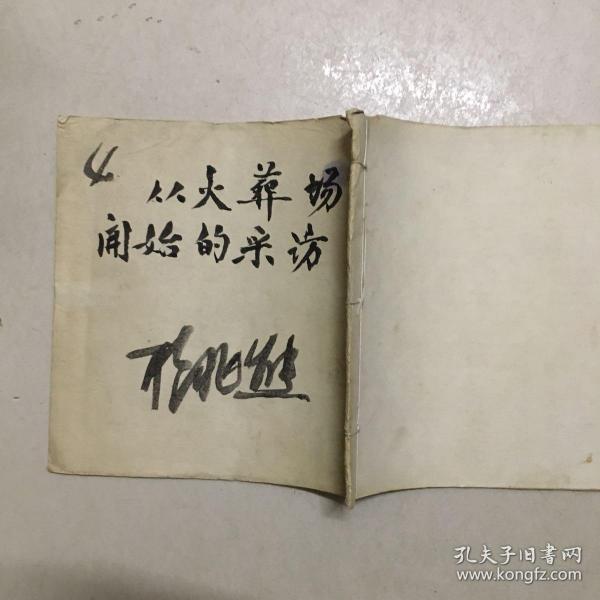 4
从火葬场
开始的采访
孔夫子旧書网
www.kongfz.com